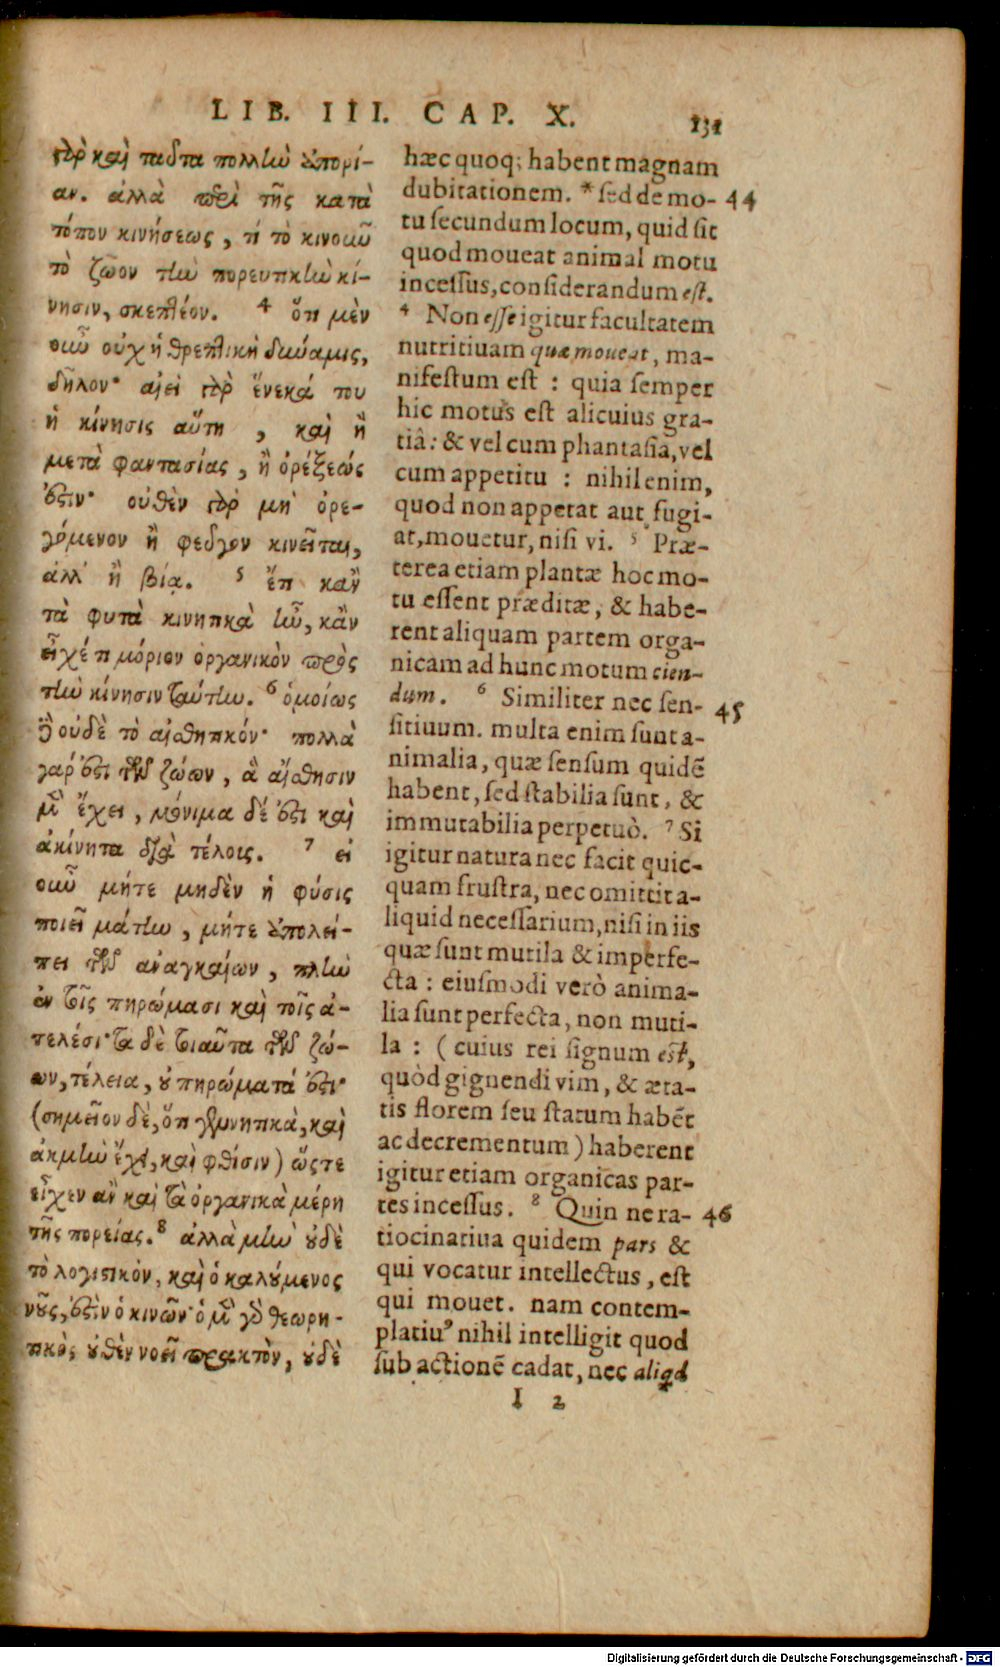 LIB. III. CAP. X. 131
γὰρ καὶ ταῦτα πολλὴν ἀπορί-
αν. ἀλλὰ περὶ τῆς κατὰ
τόπον κινήσεως, τί τὸ κινοιωῦ
τὸ ζῶον τὴν πορευτικὴν κί-
νησιν, σκεπτέον. 4 ὅτι μὲν
οὖν οὐχ ἡ θρεπτικὴ δύναμις,
δῆλον· αἰεὶ γὰρ ἕνεκά του
ἡ κίνησις αὕτη, καὶ ἢ
μετὰ φαντασίας, ἢ ὀρέξεώς
ἐστιν· οὐθὲν γὰρ μὴ ὀρε-
γόμενον ἢ φεῦγον κινεῖται,
ἀλλ' ἢ βίᾳ. 5 ἔτι κἂν
τὰ φυτὰ κινητικὰ ἦν, κἂν
εἶχέ τι μόριον ὀργανικὸν πρὸς
τὴν κίνησιν ταύτην. 6 ὁμοίως
δὲ οὐδὲ τὸ αἰσθητικόν· πολλὰ
γάρ ἐστι τῶν ζώων, ἃ αἴσθησιν
μὲν ἔχει, μόνιμα δέ ἐστι καὶ
ἀκίνητα διὰ τέλοις. 7 εἰ
οὖν μήτε μηδὲν ἡ φύσις
ποιεῖ μάτην, μήτε ἀπολεί-
πει τῶν ἀναγκαίων, πλὴν
ἐν τοῖς πηρώμασι καὶ τοῖς ἀ-
τελέσι· τὰ δὲ τοιαῦτα τῶν ζώ-
ων, τέλεια, οὐ πηρώματά ἐστι·
(σημεῖον δὲ, ὅτι γεννητικὰ, καὶ
ἀκμὴν ἔχει, καὶ φθίσιν) ὥστε
εἶχεν ἂν καὶ τὰ ὀργανικὰ μέρη
τῆς πορείας. 8 ἀλλὰ μὴν οὐδὲ
τὸ λογιστικὸν, καὶ ὁ καλούμενος
νοῦς, ἐστὶν ὁ κινῶν· ὁ μὲν γὰρ θεωρη-
τικὸς οὐθὲν νοεῖ πρακτὸν, οὐδὲ
hæc quoq; habent magnam
dubitationem. * sed de mo- 44
tu secundum locum, quid sit
quod moueat animal motu
incessus, considerandum est.
4 Non esse igitur facultatem
nutritiuam quæ moueat, ma-
nifestum est : quia semper
hic motus est alicuius gra-
tiâ: & vel cum phantasia, vel
cum appetitu : nihil enim,
quod non appetat aut fugi-
at, mouetur, nisi vi. 5 Præ-
terea etiam plantæ hoc mo-
tu essent præditæ, & habe-
rent aliquam partem orga-
nicam ad hunc motum cien-
dum. 6 Similiter nec sen- 45
sitiuum. multa enim sunt a-
nimalia, quæ sensum quidẽ
habent, sed stabilia sunt, &
immutabilia perpetuò. 7 Si
igitur natura nec facit quic-
quam frustra, nec omittit a-
liquid necessarium, nisi in iis
quæ sunt mutila & imperfe-
cta : eiusmodi verò anima-
lia sunt perfecta, non muti-
la : ( cuius rei signum est,
quòd gignendi vim, & æta-
tis florem seu statum habẽt
ac decrementum ) haberent
igitur etiam organicas par-
tes incessus. 8 Quin ne ra- 46
tiocinatiua quidem pars &
qui vocatur intellectus, est
qui mouet. nam contem-
platiuꝰ nihil intelligit quod
sub actionẽ cadat, nec aliqd
I 2
Digitalisierung gefördert durch die Deutsche Forschungsgemeinschaft - DFG